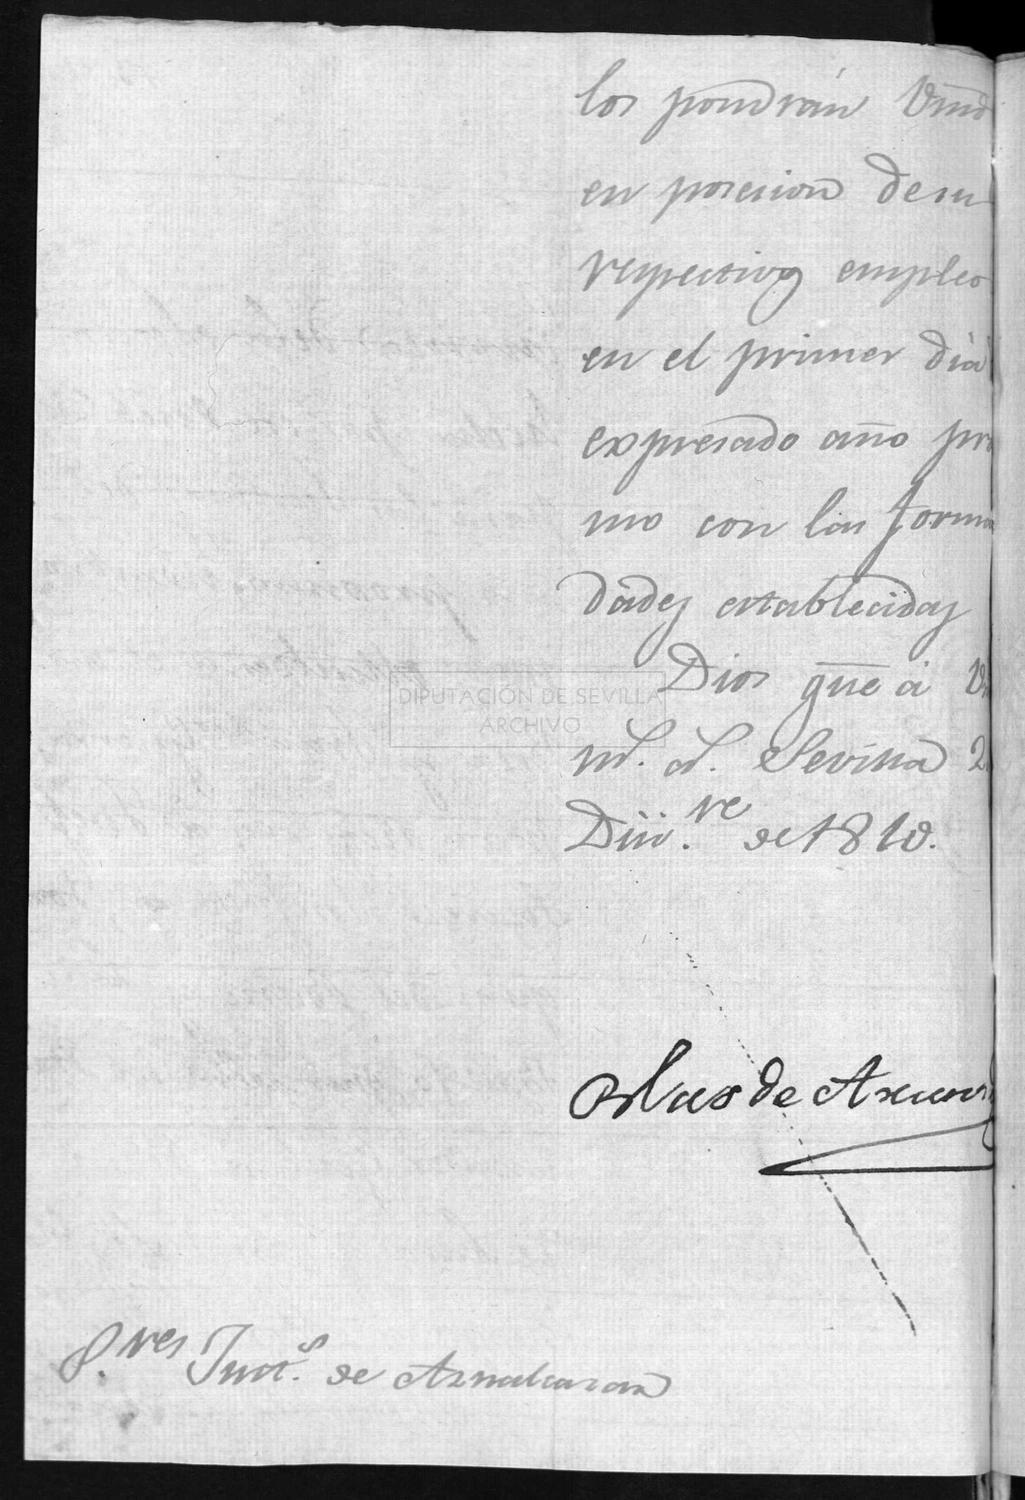 los pondrán Vmd
en posesion de su
respectivos empleo
en el primer dia
expresado año pro
mo con las forma
dades establecidas
Dios gue á Vm
m.s a.s Sevilla 2
Diz.re de 1810.
Blas de Aranza
S.res Just.s de Aznalcazar
DIPUTACIÓN DE SEVILLA
ARCHIVO